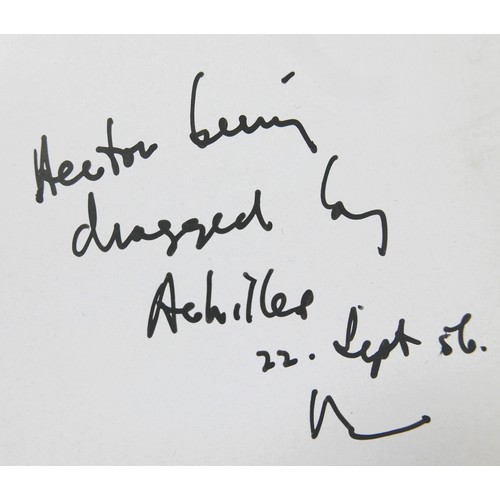 Hector being
dragged by
Achilles
22. Sept 56.